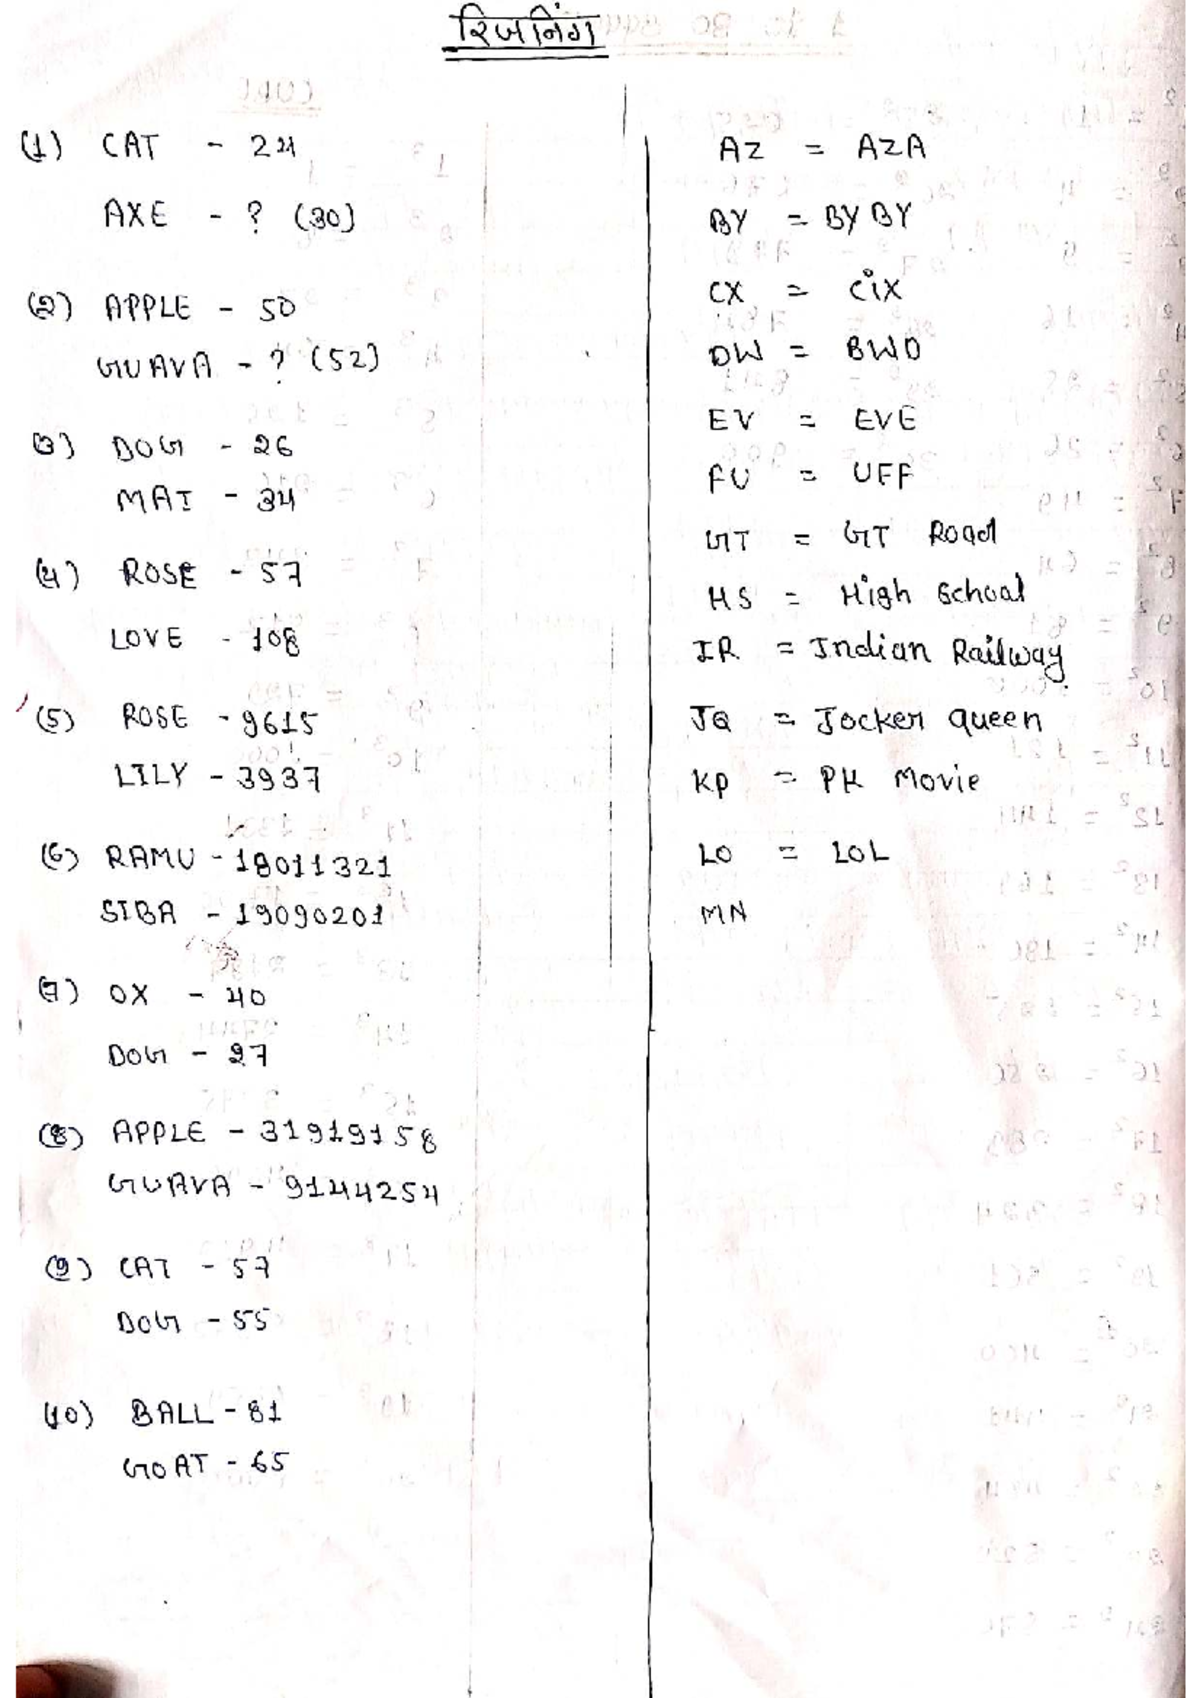 रिजनिंग
(1) CAT - 24
AXE - ? (30)
(2) APPLE - 50
GUAVA - ? (52)
(3) DOG - 26
MAT - 34
(4) ROSE - 57
LOVE - 108
(5) ROSE - 9615
LILY - 3937
(6) RAMU - 18011321
SIBA - 19090201
(7) OX - 40
DOG - 27
(8) APPLE - 31919158
GUAVA - 9144254
(9) CAT - 57
DOG - 55
(10) BALL - 81
GOAT - 65
AZ = AZA
BY = BY BY
CX = CiX
DW = BWD
EV = EVE
FU = UFF
GT = GT Road
HS = High School
IR = Indian Railway
JQ = Jocker queen
KP = PK Movie
LO = LOL
MN